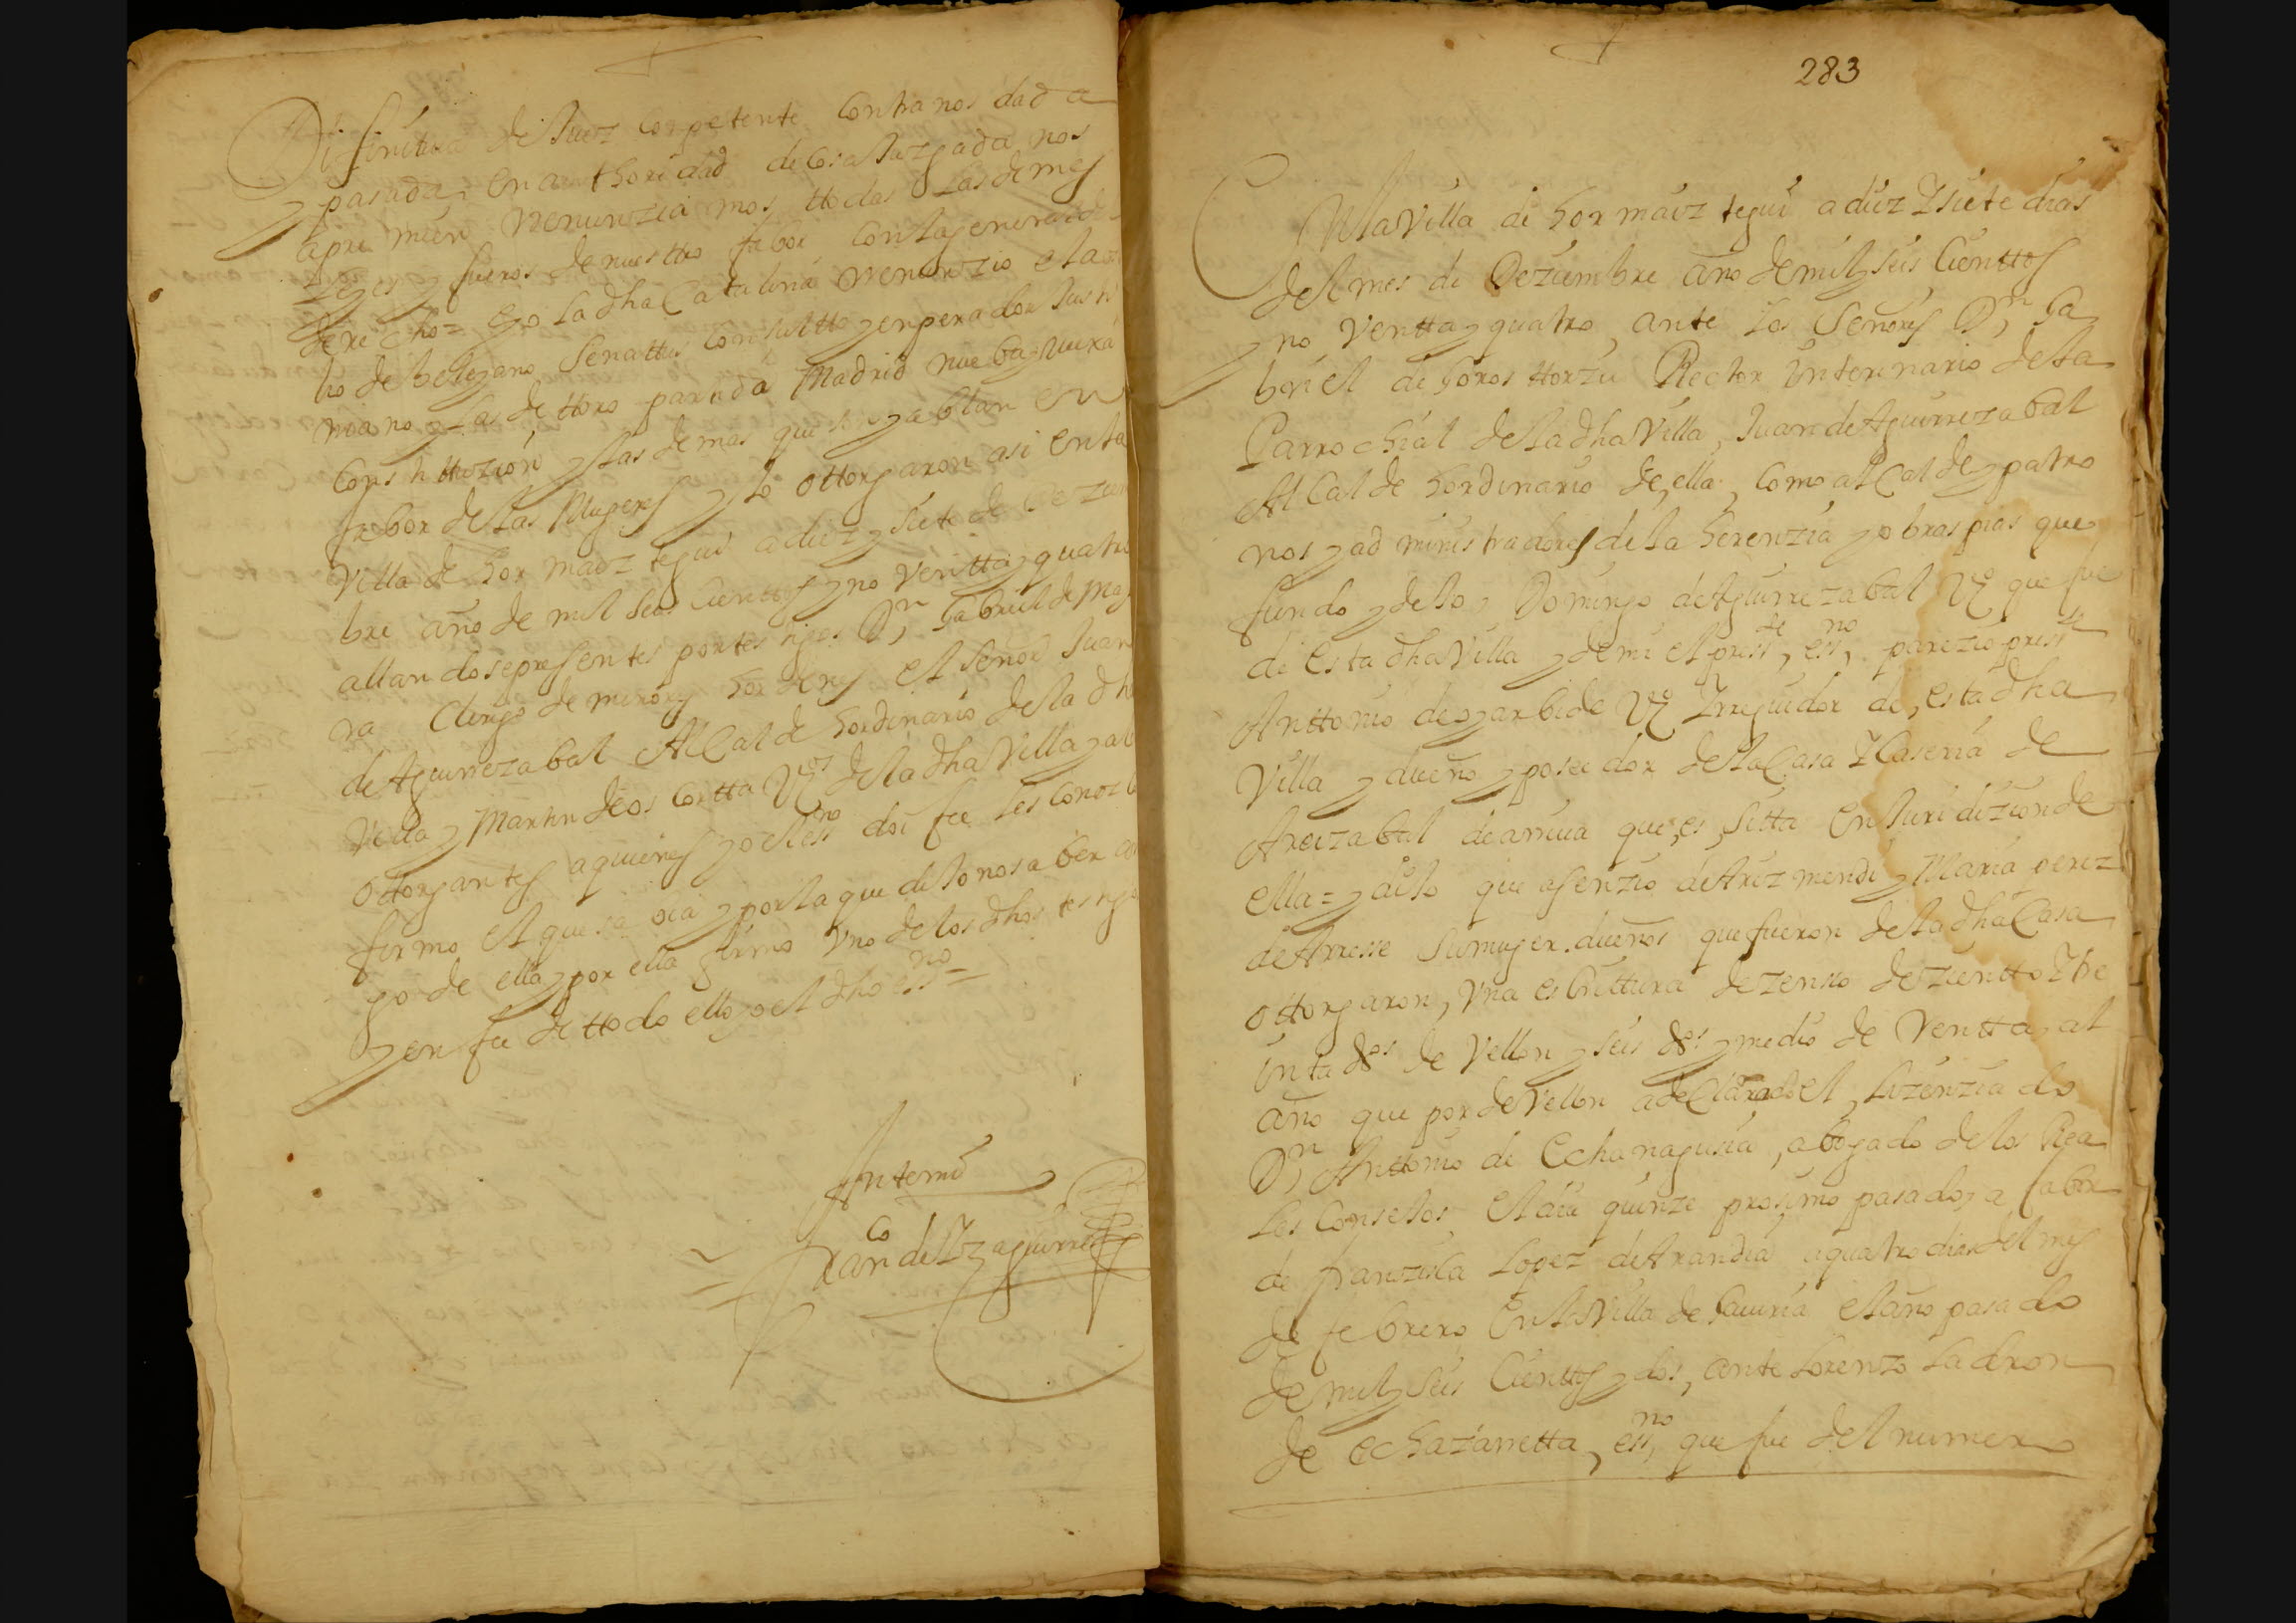 Difinitiua de Juez conpetente contra nos dada
y pasada en authoridad de cosa Juzgada nos
apremien renunziamos ttodas las demes
leyes y fueros de nuesttro fabor con la general del
derecho = E yo la dha Catalina renunzio el a
lio de beleyano senattus consultto y enperador Justi
niano y las de ttoro partida Madrid nueba y viexa
Constituzion y las demas que son y ablan en
fabor de las Mugeres y lo ottorgaron asi en la
Villa de hormaiztegui a diez y siete de Dezien
bre año de mil seis cienttos y nobentta y quatro
allandose presentes por testigos Dn Gabriel de May
ra Clerigo de menores hordenes el señor Juan
de Aguirrezabal Alcalde hordinario de la dha
Villa y Martin de os cortta Vos de la dha Villa y a
ottorgantes a quienes yo el essno doi fee les conozco
firmo el que sa via y por la que dijo no saber a
go de ella y por ella firmo vno de los dhos testigos
y en fee de ttodo ello yo el dho essno =
Antemi
Franco de Yzaguirre
283
En la Villa de hormaiztegui a diez Y siete dias
del mes de Dezienbre año de mil y seis Cienttos
y no ventta y quatro, ante los Señores Dn Ga
briel de Gorosttorzu Rector Ynterinario de la
Parrochial de la dha Villa, Juan de Aguirrezabal
Alcalde hordinario de ella, como alcalde y patro
nos y administradores de la herenzia y obras pias que
fundo y dejo Domingo de Aguirrezabal Vo que fue
de esta dha Villa y de mi el presste, essno, parezio presste
Anttonio de oyarbide Vo Y rregidor de esta dha
Villa y dueño y poseedor de la Casa Y Caseria de
Areizabal de arriua que es sitta en Juridizion de
ella = y dijo que asenzio de Arizmendi y Maria perez
de Arresse su muger dueños que fueron de la dha Casa
ottorgaron, vna escrittura de zenso de zientto Y tre
inta dos de Vellon y seis dos y medio de rentta al
año que por de Vellon a declarado el Lizenziado
Dn Anttonio de Echanagusia, abogado de los Rea
les Consejos el dia quinze prosimo pasado a saber
de franzisca Lopez de Arandia a quatro dias del mes
de febrero en la Villa de Sauria el año pasado
de mil y seis Cienttos y dos, ante Lorenzo Ladron
de echazarretta, essno, que fue del numero